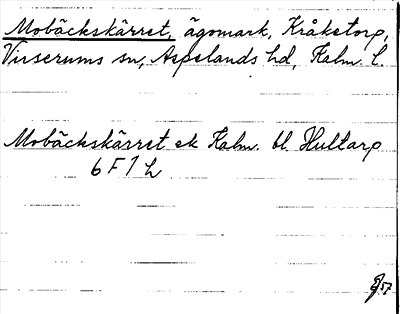 Mobäckskärret, ägomark, Kråketorp,
Virserums sn, Aspelands hd, Kalm. l.
Mobäckskärret ek Kalm. bl. Hultarp
6 F 1 h